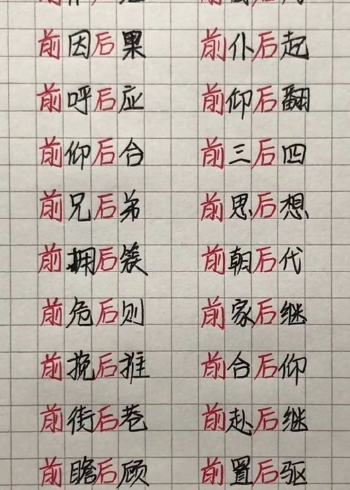 前因后果 前仆后起
前呼后应 前仰后翻
前仰后合 前三后四
前兄后弟 前思后想
前拥后簇 前朝后代
前危后则 前家后继
前挽后推 前合后仰
前街后巷 前赴后继
前瞻后顾 前置后驱